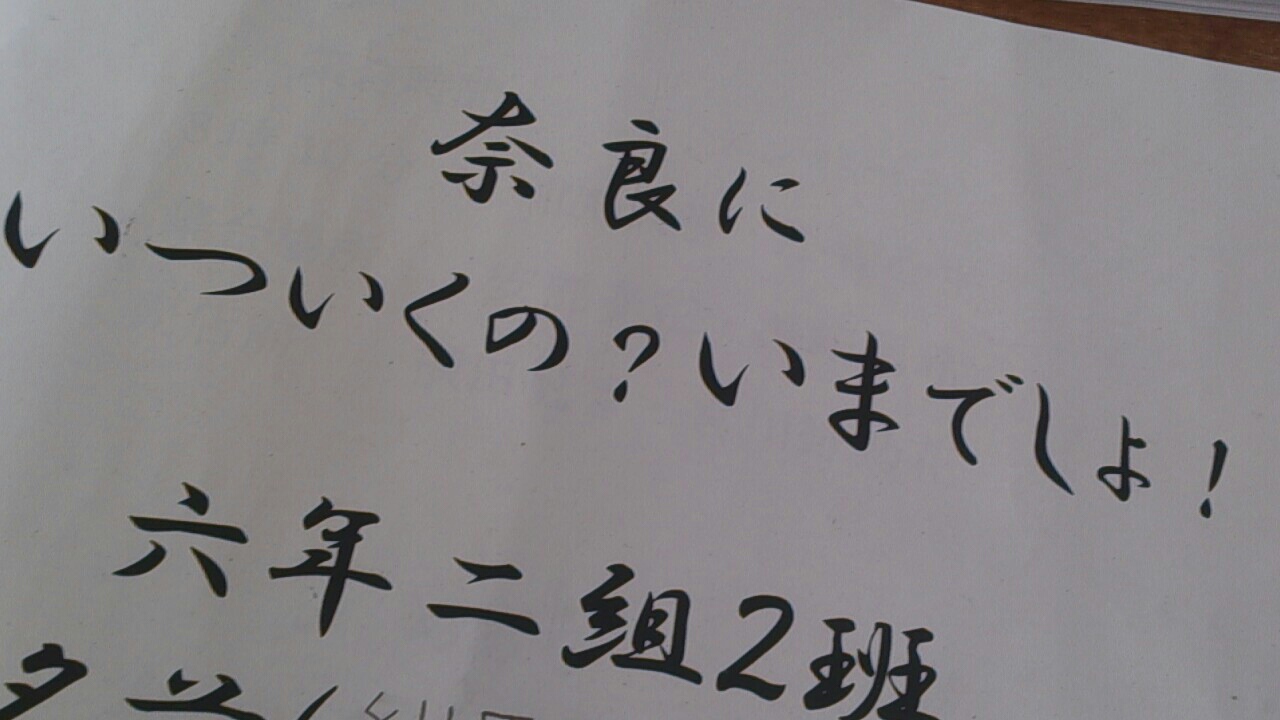 奈良に
いついくの？いまでしょ！
六年二組2班